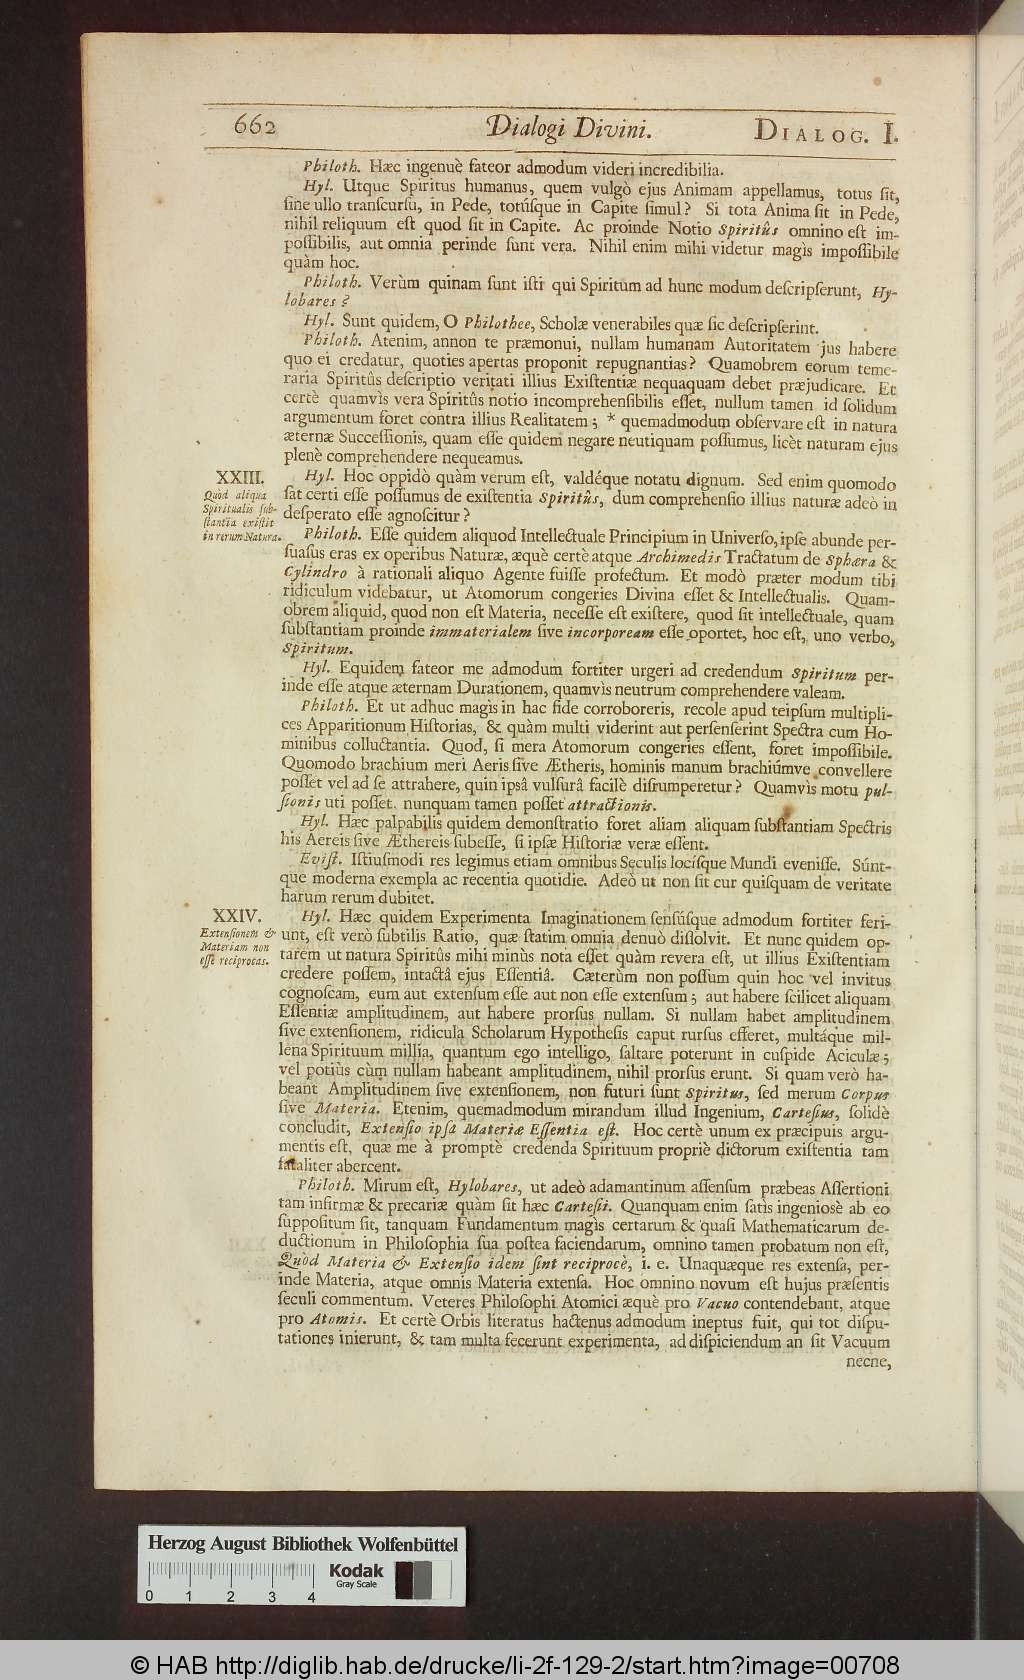 662 Dialogi Divini. DIALOG. I.
Philoth. Hæc ingenuè fateor admodum videri incredibilia.
Hyl. Utque Spiritus humanus, quem vulgò ejus Animam appellamus, totus ſit,
ſine ullo tranſcurſu, in Pede, totúſque in Capite ſimul? Si tota Anima ſit in Pede,
nihil reliquum eſt quod ſit in Capite. Ac proinde Notio Spiritûs omnino eſt im-
poſſibilis, aut omnia perinde ſunt vera. Nihil enim mihi videtur magis impoſſibile
quàm hoc.
Philoth. Verùm quinam ſunt iſti qui Spiritum ad hunc modum deſcripſerunt, Hy-
lobares?
Hyl. Sunt quidem, O Philothee, Scholæ venerabiles quæ ſic deſcripſerint.
Philoth. Atenim, annon te præmonui, nullam humanam Autoritatem jus habere
quo ei credatur, quoties apertas proponit repugnantias? Quamobrem eorum teme-
raria Spiritûs deſcriptio veritati illius Exiſtentiæ nequaquam debet præjudicare. Et
certè quamvìs vera Spiritûs notio incomprehenſibilis eſſet, nullum tamen id ſolidum
argumentum foret contra illius Realitatem; * quemadmodum obſervare eſt in natura
æternæ Succeſſionis, quam eſſe quidem negare neutiquam poſſumus, licèt naturam ejus
plenè comprehendere nequeamus.
XXIII.
Quòd aliqua
Spiritualis ſub-
ſtantia exiſtit
in rerum Natura.
Hyl. Hoc oppidò quàm verum eſt, valdéque notatu dignum. Sed enim quomodo
ſat certi eſſe poſſumus de exiſtentia Spiritûs, dum comprehenſio illius naturæ adeò in
deſperato eſſe agnoſcitur?
Philoth. Eſſe quidem aliquod Intellectuale Principium in Univerſo, ipſe abunde per-
ſuaſus eras ex operibus Naturæ, æquè certè atque Archimedis Tractatum de Sphæra &
Cylindro à rationali aliquo Agente fuiſſe profectum. Et modò præter modum tibi
ridiculum videbatur, ut Atomorum congeries Divina eſſet & Intellectualis. Quam-
obrem aliquid, quod non eſt Materia, neceſſe eſt exiſtere, quod ſit intellectuale, quam
ſubſtantiam proinde immaterialem ſive incorpoream eſſe oportet, hoc eſt, uno verbo,
Spiritum.
Hyl. Equidem fateor me admodum fortiter urgeri ad credendum Spiritum per-
inde eſſe atque æternam Durationem, quamvìs neutrum comprehendere valeam.
Philoth. Et ut adhuc magis in hac fide corroboreris, recole apud teipſum multipli-
ces Apparitionum Hiſtorias, & quàm multi viderint aut perſenſerint Spectra cum Ho-
minibus colluctantia. Quod, ſi mera Atomorum congeries eſſent, foret impoſſibile.
Quomodo brachium meri Aeris ſive Ætheris, hominis manum brachiúmve convellere
poſſet vel ad ſe attrahere, quin ipsâ vulſurâ facilè diſrumperetur? Quamvìs motu pul-
ſionis uti poſſet, nunquam tamen poſſet attractionis.
Hyl. Hæc palpabilis quidem demonſtratio foret aliam aliquam ſubſtantiam Spectris
his Aereis ſive Æthereis ſubeſſe, ſi ipſæ Hiſtoriæ veræ eſſent.
Eviſt. Iſtiuſmodi res legimus etiam omnibus Seculis locíſque Mundi eveniſſe. Súnt-
que moderna exempla ac recentia quotidie. Adeò ut non ſit cur quiſquam de veritate
harum rerum dubitet.
XXIV.
Extenſionem &
Materiam non
eſſe reciprocas.
Hyl. Hæc quidem Experimenta Imaginationem ſenſúſque admodum fortiter feri-
unt, eſt verò ſubtilis Ratio, quæ ſtatim omnia denuò diſſolvit. Et nunc quidem op-
tarem ut natura Spiritûs mihi minùs nota eſſet quàm revera eſt, ut illius Exiſtentiam
credere poſſem, intactâ ejus Eſſentiâ. Cæterùm non poſſum quin hoc vel invitus
cognoſcam, eum aut extenſum eſſe aut non eſſe extenſum; aut habere ſcilicet aliquam
Eſſentiæ amplitudinem, aut habere prorſus nullam. Si nullam habet amplitudinem
ſive extenſionem, ridicula Scholarum Hypotheſis caput rurſus efferet, multáque mil-
lena Spirituum millia, quantum ego intelligo, ſaltare poterunt in cuſpide Aciculæ;
vel potiùs cùm nullam habeant amplitudinem, nihil prorſus erunt. Si quam verò ha-
beant Amplitudinem ſive extenſionem, non futuri ſunt Spiritus, ſed merum Corpus
ſive Materia. Etenim, quemadmodum mirandum illud Ingenium, Carteſius, ſolidè
concludit, Extenſio ipſa Materiæ Eſſentia eſt. Hoc certè unum ex præcipuis argu-
mentis eſt, quæ me à promptè credenda Spirituum propriè dictorum exiſtentia tam
fataliter abercent.
Philoth. Mirum eſt, Hylobares, ut adeò adamantinum aſſenſum præbeas Aſſertioni
tam infirmæ & precariæ quàm ſit hæc Carteſii. Quanquam enim ſatìs ingeniosè ab eo
ſuppoſitum ſit, tanquam Fundamentum magìs certarum & quaſi Mathematicarum de-
ductionum in Philoſophia ſua poſtea faciendarum, omnino tamen probatum non eſt,
Quòd Materia & Extenſio idem ſint reciprocè, i. e. Unaquæque res extenſa, per-
inde Materia, atque omnis Materia extenſa. Hoc omnino novum eſt hujus præſentis
ſeculi commentum. Veteres Philoſophi Atomici æquè pro Vacuo contendebant, atque
pro Atomis. Et certè Orbis literatus hactenus admodum ineptus fuit, qui tot diſpu-
tationes inierunt, & tam multa fecerunt experimenta, ad diſpiciendum an ſit Vacuum
necne,
Herzog August Bibliothek Wolfenbüttel
0 1 2 3 4
Kodak
Gray Scale
© HAB http://diglib.hab.de/drucke/li-2f-129-2/start.htm?image=00708